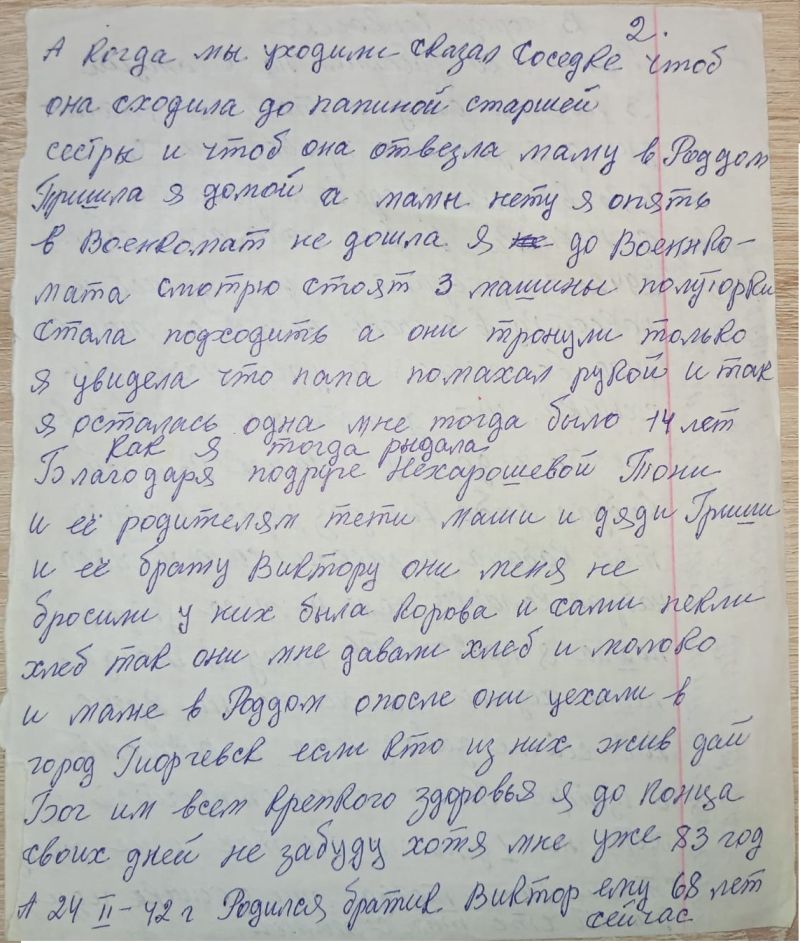 2.
А когда мы уходили сказал соседке чтоб
она сходила до папиной старшей
сестры и чтоб она отвезла маму в Роддом
Пришла я домой а мамы нету я опять
в Военкомат не дошла я до Военко-
мата смотрю стоят 3 машины полуторки
стала подходить а они тронули только
я увидела что папа помахал рукой и так
я осталась одна мне тогда было 14 лет
как я тогда рыдала
Благодаря подруге Нехарошевой Тони
и её родителям тети Маши и дяди Гриши
и её брату Виктору они меня не
бросили у них была корова и сами пекли
хлеб так они мне давали хлеб и молоко
и маме в Роддом опосле они уехали в
город Гиоргевск если кто из них жив дай
Бог им всем крепкого здоровья я до конца
своих дней не забуду хотя мне уже 83 год
А 24 II-42 г Родился братик Виктор ему 68 лет
сейчас